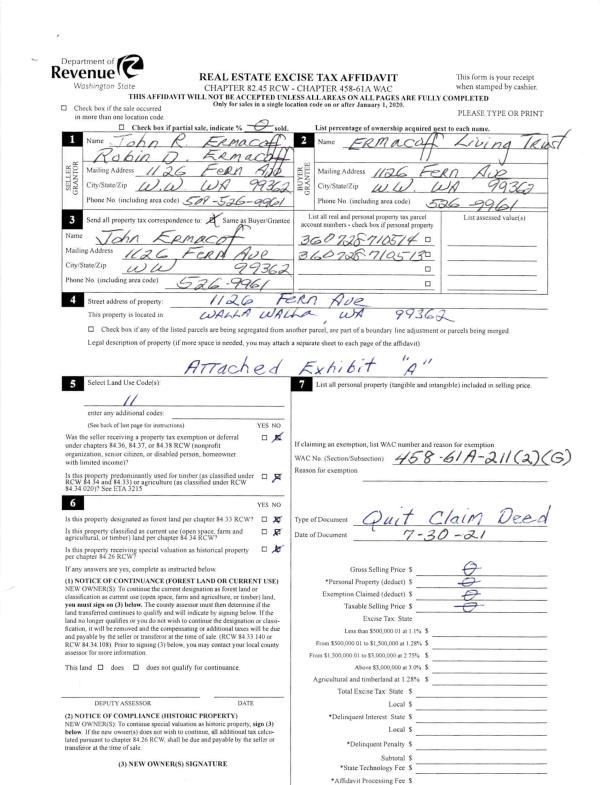 Department of
Revenue
Washington State
REAL ESTATE EXCISE TAX AFFIDAVIT
CHAPTER 82.45 RCW - CHAPTER 458-61A WAC
This form is your receipt
when stamped by cashier.
THIS AFFIDAVIT WILL NOT BE ACCEPTED UNLESS ALL AREAS ON ALL PAGES ARE FULLY COMPLETED
Only for sales in a single location code on or after January 1, 2020.
☐ Check box if the sale occurred
in more than one location code
PLEASE TYPE OR PRINT
☐ Check box if partial sale, indicate % 0 sold.
List percentage of ownership acquired next to each name.
1 Name John R. Ermacoff
Robin D. Ermacoff
SELLER GRANTOR
Mailing Address 1126 Fern Ave
City/State/Zip W.W. WA 99362
Phone No. (including area code) 509-526-9961
2 Name Ermacoff Living Trust
BUYER GRANTEE
Mailing Address 1126 Fern Ave
City/State/Zip W.W. WA 99362
Phone No. (including area code) 526-9961
3 Send all property tax correspondence to: ☒ Same as Buyer/Grantee
Name John Ermacoff
Mailing Address 1126 Fern Ave
City/State/Zip WW 99362
Phone No. (including area code) 526-9961
List all real and personal property tax parcel
account numbers - check box if personal property
360728710514 ☐
360728710513 ☐
☐
☐
List assessed value(s)
4 Street address of property: 1126 Fern Ave
This property is located in WALLA WALLA, WA 99362
☐ Check box if any of the listed parcels are being segregated from another parcel, are part of a boundary line adjustment or parcels being merged
Legal description of property (if more space is needed, you may attach a separate sheet to each page of the affidavit)
Attached Exhibit "A"
5 Select Land Use Code(s):
11
enter any additional codes:
(See back of last page for instructions)
YES NO
Was the seller receiving a property tax exemption or deferral
under chapters 84.36, 84.37, or 84.38 RCW (nonprofit
organization, senior citizen, or disabled person, homeowner
with limited income)? ☐ ☒
Is this property predominantly used for timber (as classified under
RCW 84.34 and 84.33) or agriculture (as classified under RCW
84.34.020)? See ETA 3215 ☐ ☒
6 YES NO
Is this property designated as forest land per chapter 84.33 RCW? ☐ ☒
Is this property classified as current use (open space, farm and
agricultural, or timber) land per chapter 84.34 RCW? ☐ ☒
Is this property receiving special valuation as historical property
per chapter 84.26 RCW? ☐ ☒
If any answers are yes, complete as instructed below.
(1) NOTICE OF CONTINUANCE (FOREST LAND OR CURRENT USE)
NEW OWNER(S): To continue the current designation as forest land or
classification as current use (open space, farm and agriculture, or timber) land,
you must sign on (3) below. The county assessor must then determine if the
land transferred continues to qualify and will indicate by signing below. If the
land no longer qualifies or you do not wish to continue the designation or classi-
fication, it will be removed and the compensating or additional taxes will be due
and payable by the seller or transferor at the time of sale. (RCW 84.33.140 or
RCW 84.34.108). Prior to signing (3) below, you may contact your local county
assessor for more information.
This land ☐ does ☐ does not qualify for continuance.
DEPUTY ASSESSOR DATE
(2) NOTICE OF COMPLIANCE (HISTORIC PROPERTY)
NEW OWNER(S): To continue special valuation as historic property, sign (3)
below. If the new owner(s) does not wish to continue, all additional tax calcu-
lated pursuant to chapter 84.26 RCW, shall be due and payable by the seller or
transferor at the time of sale.
(3) NEW OWNER(S) SIGNATURE
7 List all personal property (tangible and intangible) included in selling price.
If claiming an exemption, list WAC number and reason for exemption
WAC No. (Section/Subsection) 458-61A-211(2)(G)
Reason for exemption
Type of Document Quit Claim Deed
Date of Document 7-30-21
Gross Selling Price $ 0
*Personal Property (deduct) $ 0
Exemption Claimed (deduct) $ 0
Taxable Selling Price $ 0
Excise Tax: State
Less than $500,000.01 at 1.1% $
From $500,000.01 to $1,500,000 at 1.28% $
From $1,500,000.01 to $3,000,000 at 2.75% $
Above $3,000,000 at 3.0% $
Agricultural and timberland at 1.28% $
Total Excise Tax: State $
Local $
*Delinquent Interest: State $
Local $
*Delinquent Penalty $
Subtotal $
*State Technology Fee $
*Affidavit Processing Fee $